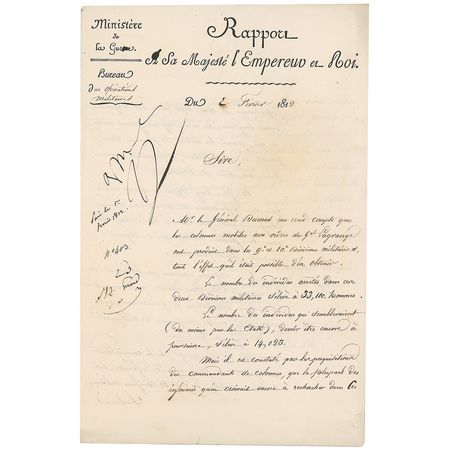 Ministère
de
la Guerre
Bureau
des opérations
Militaires
Rapport
A Sa Majesté l'Empereur et Roi.
Du 2 Février 1812
Sire,
Mr. le Général Dumas me rend compte que
les colonnes mobiles aux ordres du Gal. Lagrange
ont produit dans les 9e. et 10e. Divisions militaires,
tout l'effet qu'il était possible d'en obtenir.
Le nombre des individus arrêtés dans ces
deux Divisions militaires s'élève à 33,100 hommes.
Le nombre des individus qui sembleraient
(du moins par les Etats), devoir être encore à
poursuivre, s'élève à 14,023.
Mais il est constaté par les perquisitions
des commandants de colonnes, que la plupart des
insoumis qu'on croirait encore à rechercher dans les